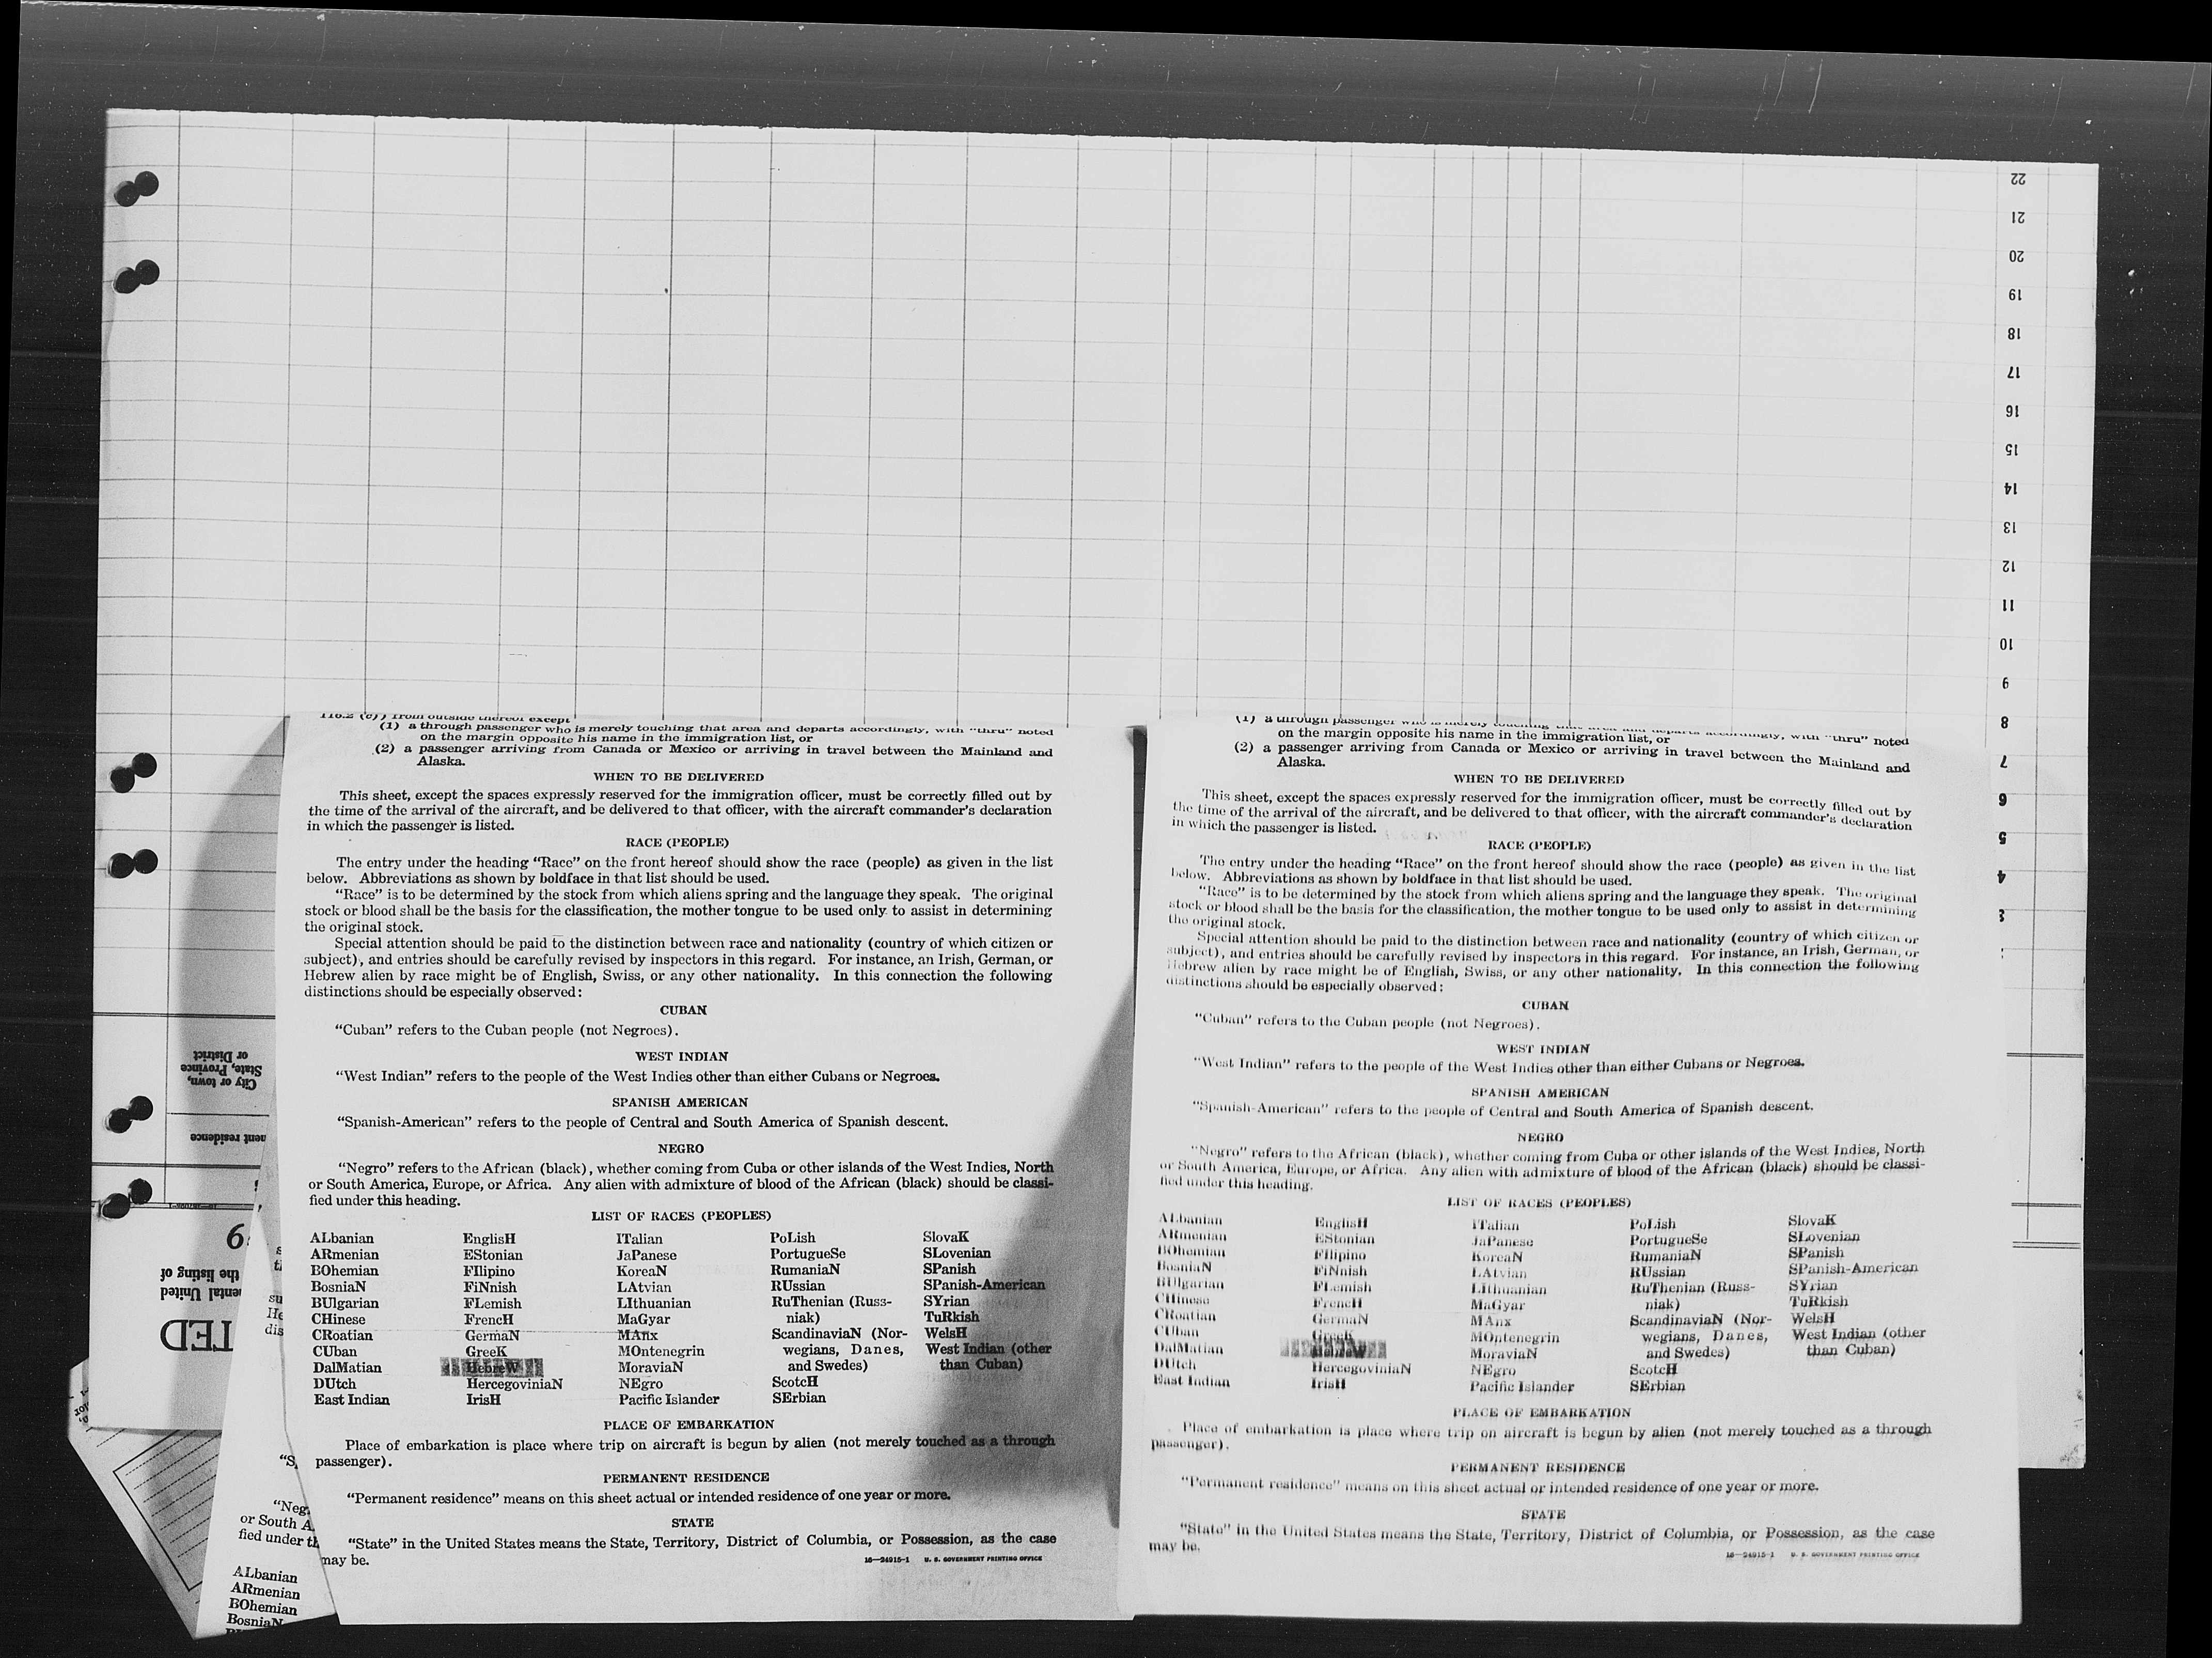 22
21
20
19
18
17
16
15
14
13
12
11
10
9
8
7
6
5
4
3
116.2 (c)) from outside thereof except
(1) a through passenger who is merely touching that area and departs accordingly, with "thru" noted
on the margin opposite his name in the immigration list, or
(2) a passenger arriving from Canada or Mexico or arriving in travel between the Mainland and
Alaska.
WHEN TO BE DELIVERED
This sheet, except the spaces expressly reserved for the immigration officer, must be correctly filled out by
the time of the arrival of the aircraft, and be delivered to that officer, with the aircraft commander's declaration
in which the passenger is listed.
RACE (PEOPLE)
The entry under the heading "Race" on the front hereof should show the race (people) as given in the list
below. Abbreviations as shown by boldface in that list should be used.
"Race" is to be determined by the stock from which aliens spring and the language they speak. The original
stock or blood shall be the basis for the classification, the mother tongue to be used only to assist in determining
the original stock.
Special attention should be paid to the distinction between race and nationality (country of which citizen or
subject), and entries should be carefully revised by inspectors in this regard. For instance, an Irish, German, or
Hebrew alien by race might be of English, Swiss, or any other nationality. In this connection the following
distinctions should be especially observed:
CUBAN
"Cuban" refers to the Cuban people (not Negroes).
WEST INDIAN
"West Indian" refers to the people of the West Indies other than either Cubans or Negroes.
SPANISH AMERICAN
"Spanish-American" refers to the people of Central and South America of Spanish descent.
NEGRO
"Negro" refers to the African (black), whether coming from Cuba or other islands of the West Indies, North
or South America, Europe, or Africa. Any alien with admixture of blood of the African (black) should be classi-
fied under this heading.
LIST OF RACES (PEOPLES)
ALbanian EnglisH ITalian PoLish SlovaK
ARmenian EStonian JaPanese PortugueSe SLovenian
BOhemian FIlipino KoreaN RumaniaN SPanish
BosniaN FiNnish LAtvian RUssian SPanish-American
BUlgarian FLemish LIthuanian RuThenian (Russ- SYrian
CHinese FrencH MaGyar niak) TuRkish
CRoatian GermaN MAnx ScandinaviaN (Nor- WelsH
CUban GreeK MOntenegrin wegians, Danes, West Indian (other
DalMatian HebreW MoraviaN and Swedes) than Cuban)
DUtch HercegoviniaN NEgro ScotcH
East Indian IrisH Pacific Islander SErbian
PLACE OF EMBARKATION
Place of embarkation is place where trip on aircraft is begun by alien (not merely touched as a through
passenger).
PERMANENT RESIDENCE
"Permanent residence" means on this sheet actual or intended residence of one year or more.
STATE
"State" in the United States means the State, Territory, District of Columbia, or Possession, as the case
may be.
16—24915-1 U. S. GOVERNMENT PRINTING OFFICE
(1) a through passenger
on the margin opposite his name in the immigration list, or departs accordingly, with "thru" noted
(2) a passenger arriving from Canada or Mexico or arriving in travel between the Mainland and
Alaska.
WHEN TO BE DELIVERED
This sheet, except the spaces expressly reserved for the immigration officer, must be correctly filled out by
the time of the arrival of the aircraft, and be delivered to that officer, with the aircraft commander's declaration
in which the passenger is listed.
RACE (PEOPLE)
The entry under the heading "Race" on the front hereof should show the race (people) as given in the list
below. Abbreviations as shown by boldface in that list should be used.
"Race" is to be determined by the stock from which aliens spring and the language they speak. The original
stock or blood shall be the basis for the classification, the mother tongue to be used only to assist in determining
the original stock.
Special attention should be paid to the distinction between race and nationality (country of which citizen or
subject), and entries should be carefully revised by inspectors in this regard. For instance, an Irish, German, or
Hebrew alien by race might be of English, Swiss, or any other nationality. In this connection the following
distinctions should be especially observed:
CUBAN
"Cuban" refers to the Cuban people (not Negroes).
WEST INDIAN
"West Indian" refers to the people of the West Indies other than either Cubans or Negroes.
SPANISH AMERICAN
"Spanish-American" refers to the people of Central and South America of Spanish descent.
NEGRO
"Negro" refers to the African (black), whether coming from Cuba or other islands of the West Indies, North
or South America, Europe, or Africa. Any alien with admixture of blood of the African (black) should be classi-
fied under this heading.
LIST OF RACES (PEOPLES)
ALbanian EnglisH ITalian PoLish SlovaK
ARmenian EStonian JaPanese PortugueSe SLovenian
BOhemian FIlipino KoreaN RumaniaN SPanish
BosniaN FiNnish LAtvian RUssian SPanish-American
BUlgarian FLemish LIthuanian RuThenian (Russ- SYrian
CHinese FrencH MaGyar niak) TuRkish
CRoatian GermaN MAnx ScandinaviaN (Nor- WelsH
CUban GreeK MOntenegrin wegians, Danes, West Indian (other
DalMatian MoraviaN and Swedes) than Cuban)
DUtch HercegoviniaN NEgro ScotcH
East Indian IrisH Pacific Islander SErbian
PLACE OF EMBARKATION
Place of embarkation is place where trip on aircraft is begun by alien (not merely touched as a through
passenger).
PERMANENT RESIDENCE
"Permanent residence" means on this sheet actual or intended residence of one year or more.
STATE
"State" in the United States means the State, Territory, District of Columbia, or Possession, as the case
may be.
16—24915-1 U. S. GOVERNMENT PRINTING OFFICE
City or town,
State, Province
or District
nent residence
ental United
the listing of
TED
su
He
dis
"S
"Neg
or South A
fied under th
ALbanian
ARmenian
BOhemian
BosniaN